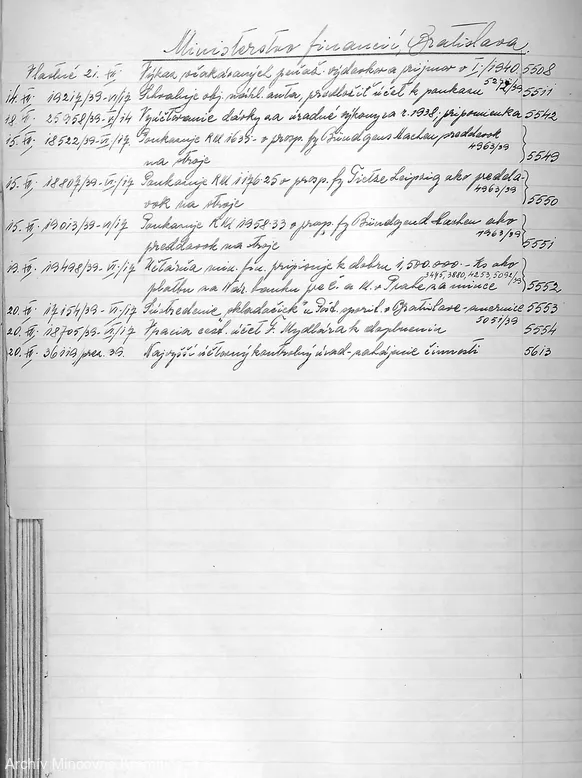 Ministerstvo financií, Bratislava
Vlastné 21. XII. Výkaz očakávaných peňaž. výdavkov a príjmov v I./1940 5508
5274/39
14. XII. 19217/39-VI/17 Schvaľuje obj. nákl. auta, predložiť účet k poukazu 5511
18. XII. 25958/39-V/14 Vyúčtovanie dávky na úradné výkony za r. 1938, pripomienka 5542
15. XII. 18522/39-VI/17 Poukazuje RM 1635- v prosp. fy Bündgens Aachen, preddavok
4963/39
na stroje 5549
15. XII. 18807/39-VI/17 Poukazuje RM 1176.25 v prosp. fy Tietze Leipzig ako predda-
4963/39
vok na stroje 5550
15. XII. 19013/39-VI/17 Poukazuje RM 1958.33 v prosp. fy Bündgens Aachen ako
4963/39
preddavok na stroje 5551
19. XII. 19498/39-VI/17 Účtáreň min. fin. pripisuje k dobru 1,500.000.- Ks ako
3495, 3880, 4253, 5092/39
platbu na Nár. banku pre Č. a M. v Prahe za mince 5552
20. XII. 17154/39-VI/17 Sústredenie "skladačiek" u Pošt. sporit. v Bratislave-smernice 5553
5051/39
20. XII. 18705/39-VI/17 Vracia cest. účet F. Mydlára k doplneniu 5554
20. XII. 36019 prez. 39. Najvyšší účtovný kontrolný úrad-zahájenie činnosti 5613
Archív Mincovne